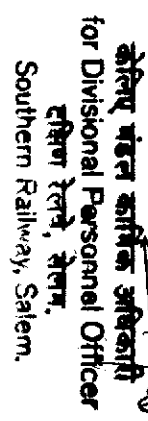 केलिए मंडल कार्मिक अधिकारी
for Divisional Personnel Officer
दक्षिण रेलवे, सेलम.
Southern Railway, Salem.